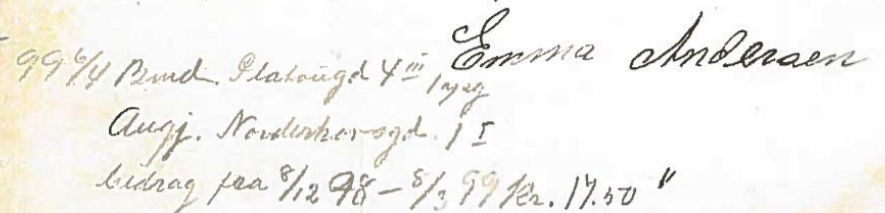 Emma Andersen
99 6/4 Bmd. Platougd 4 III, 
Augj. Nordenhovsgd. 1 I
bidrag fra 8/12 98 – 8/3 99 Kr. 17.50 "